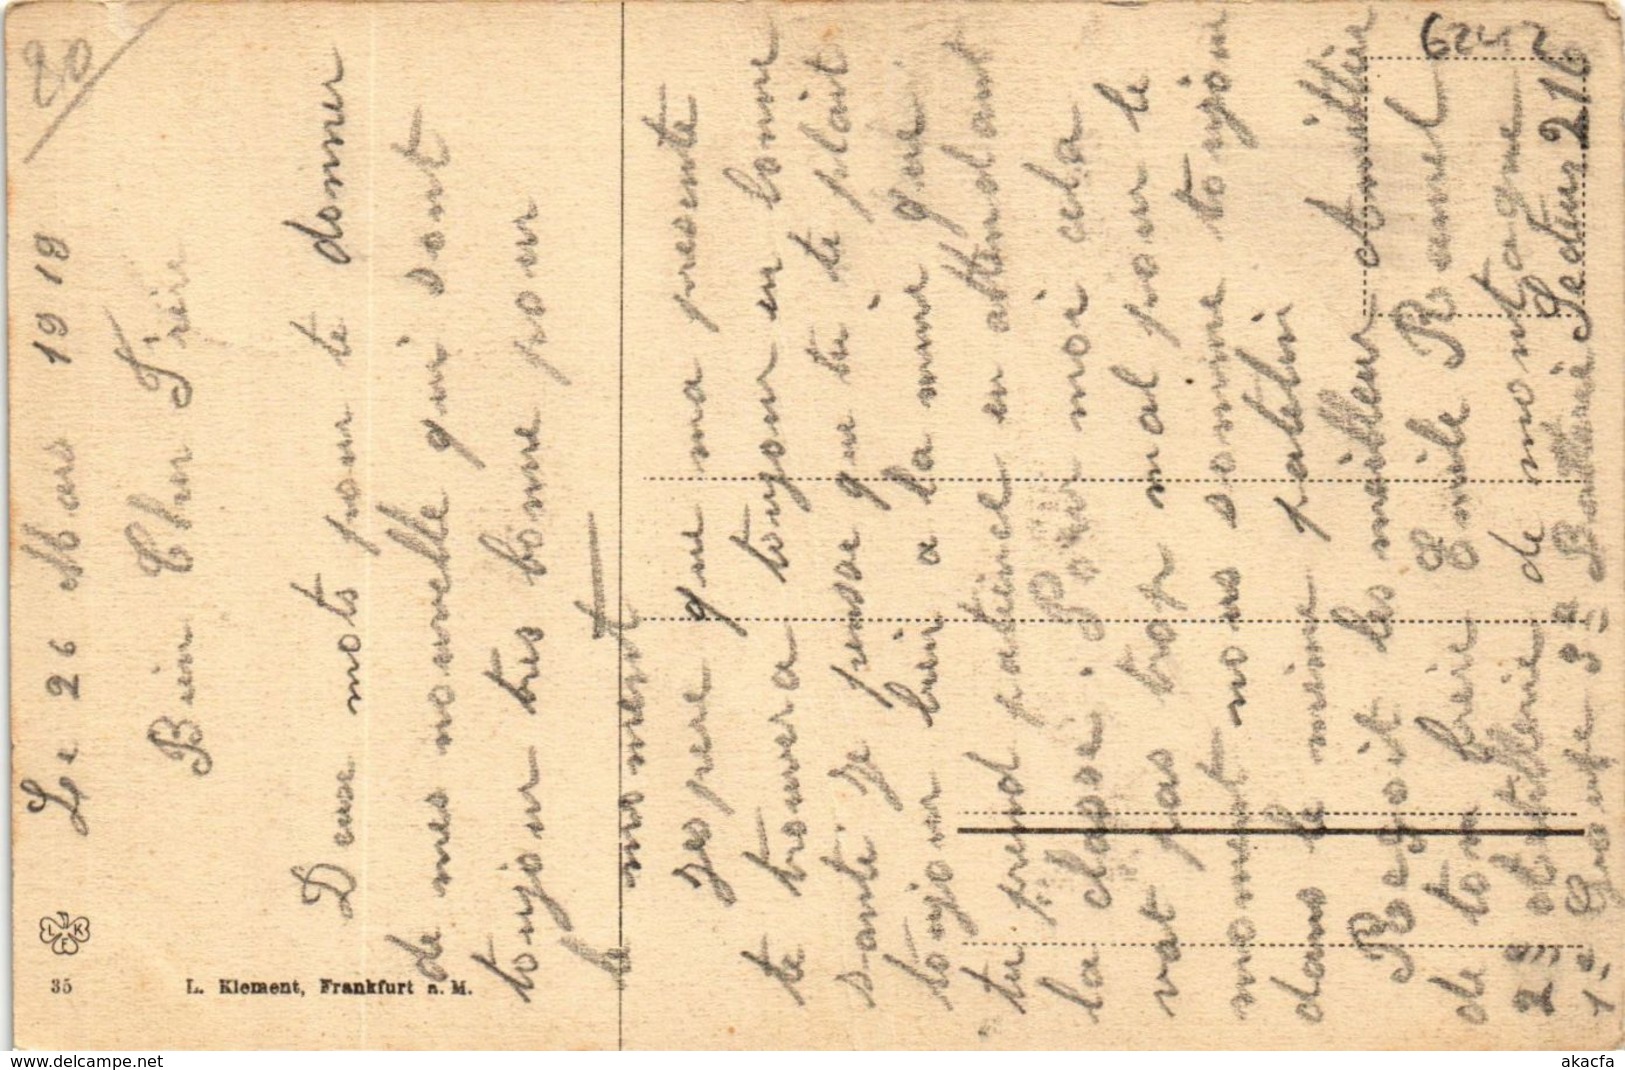 20
6242
Le 26 Mars 1919
Bien Cher Frère
Deux mots pour te donner
de mes nouvelle qui sont
toujour tres bonne pour
le moment
Jespere que ma presente
te trouvera toujour en bonne
santé Je pensse que tu te plait
toujour bien a la même que
tu prend patience en attendant
la classe. Pour moi cela
vat pas trop mal pour le
moment nous somme toujour
dans le même patelin
Reçoit les meilleur Amitiér
de ton freire Emile Ramel
2e Artillerie de montagne
1er Groupe 3e Batterie Secteur 216
L K F
35
L. Klement, Frankfurt a. M.
https://www.delcampe.net
akacfa